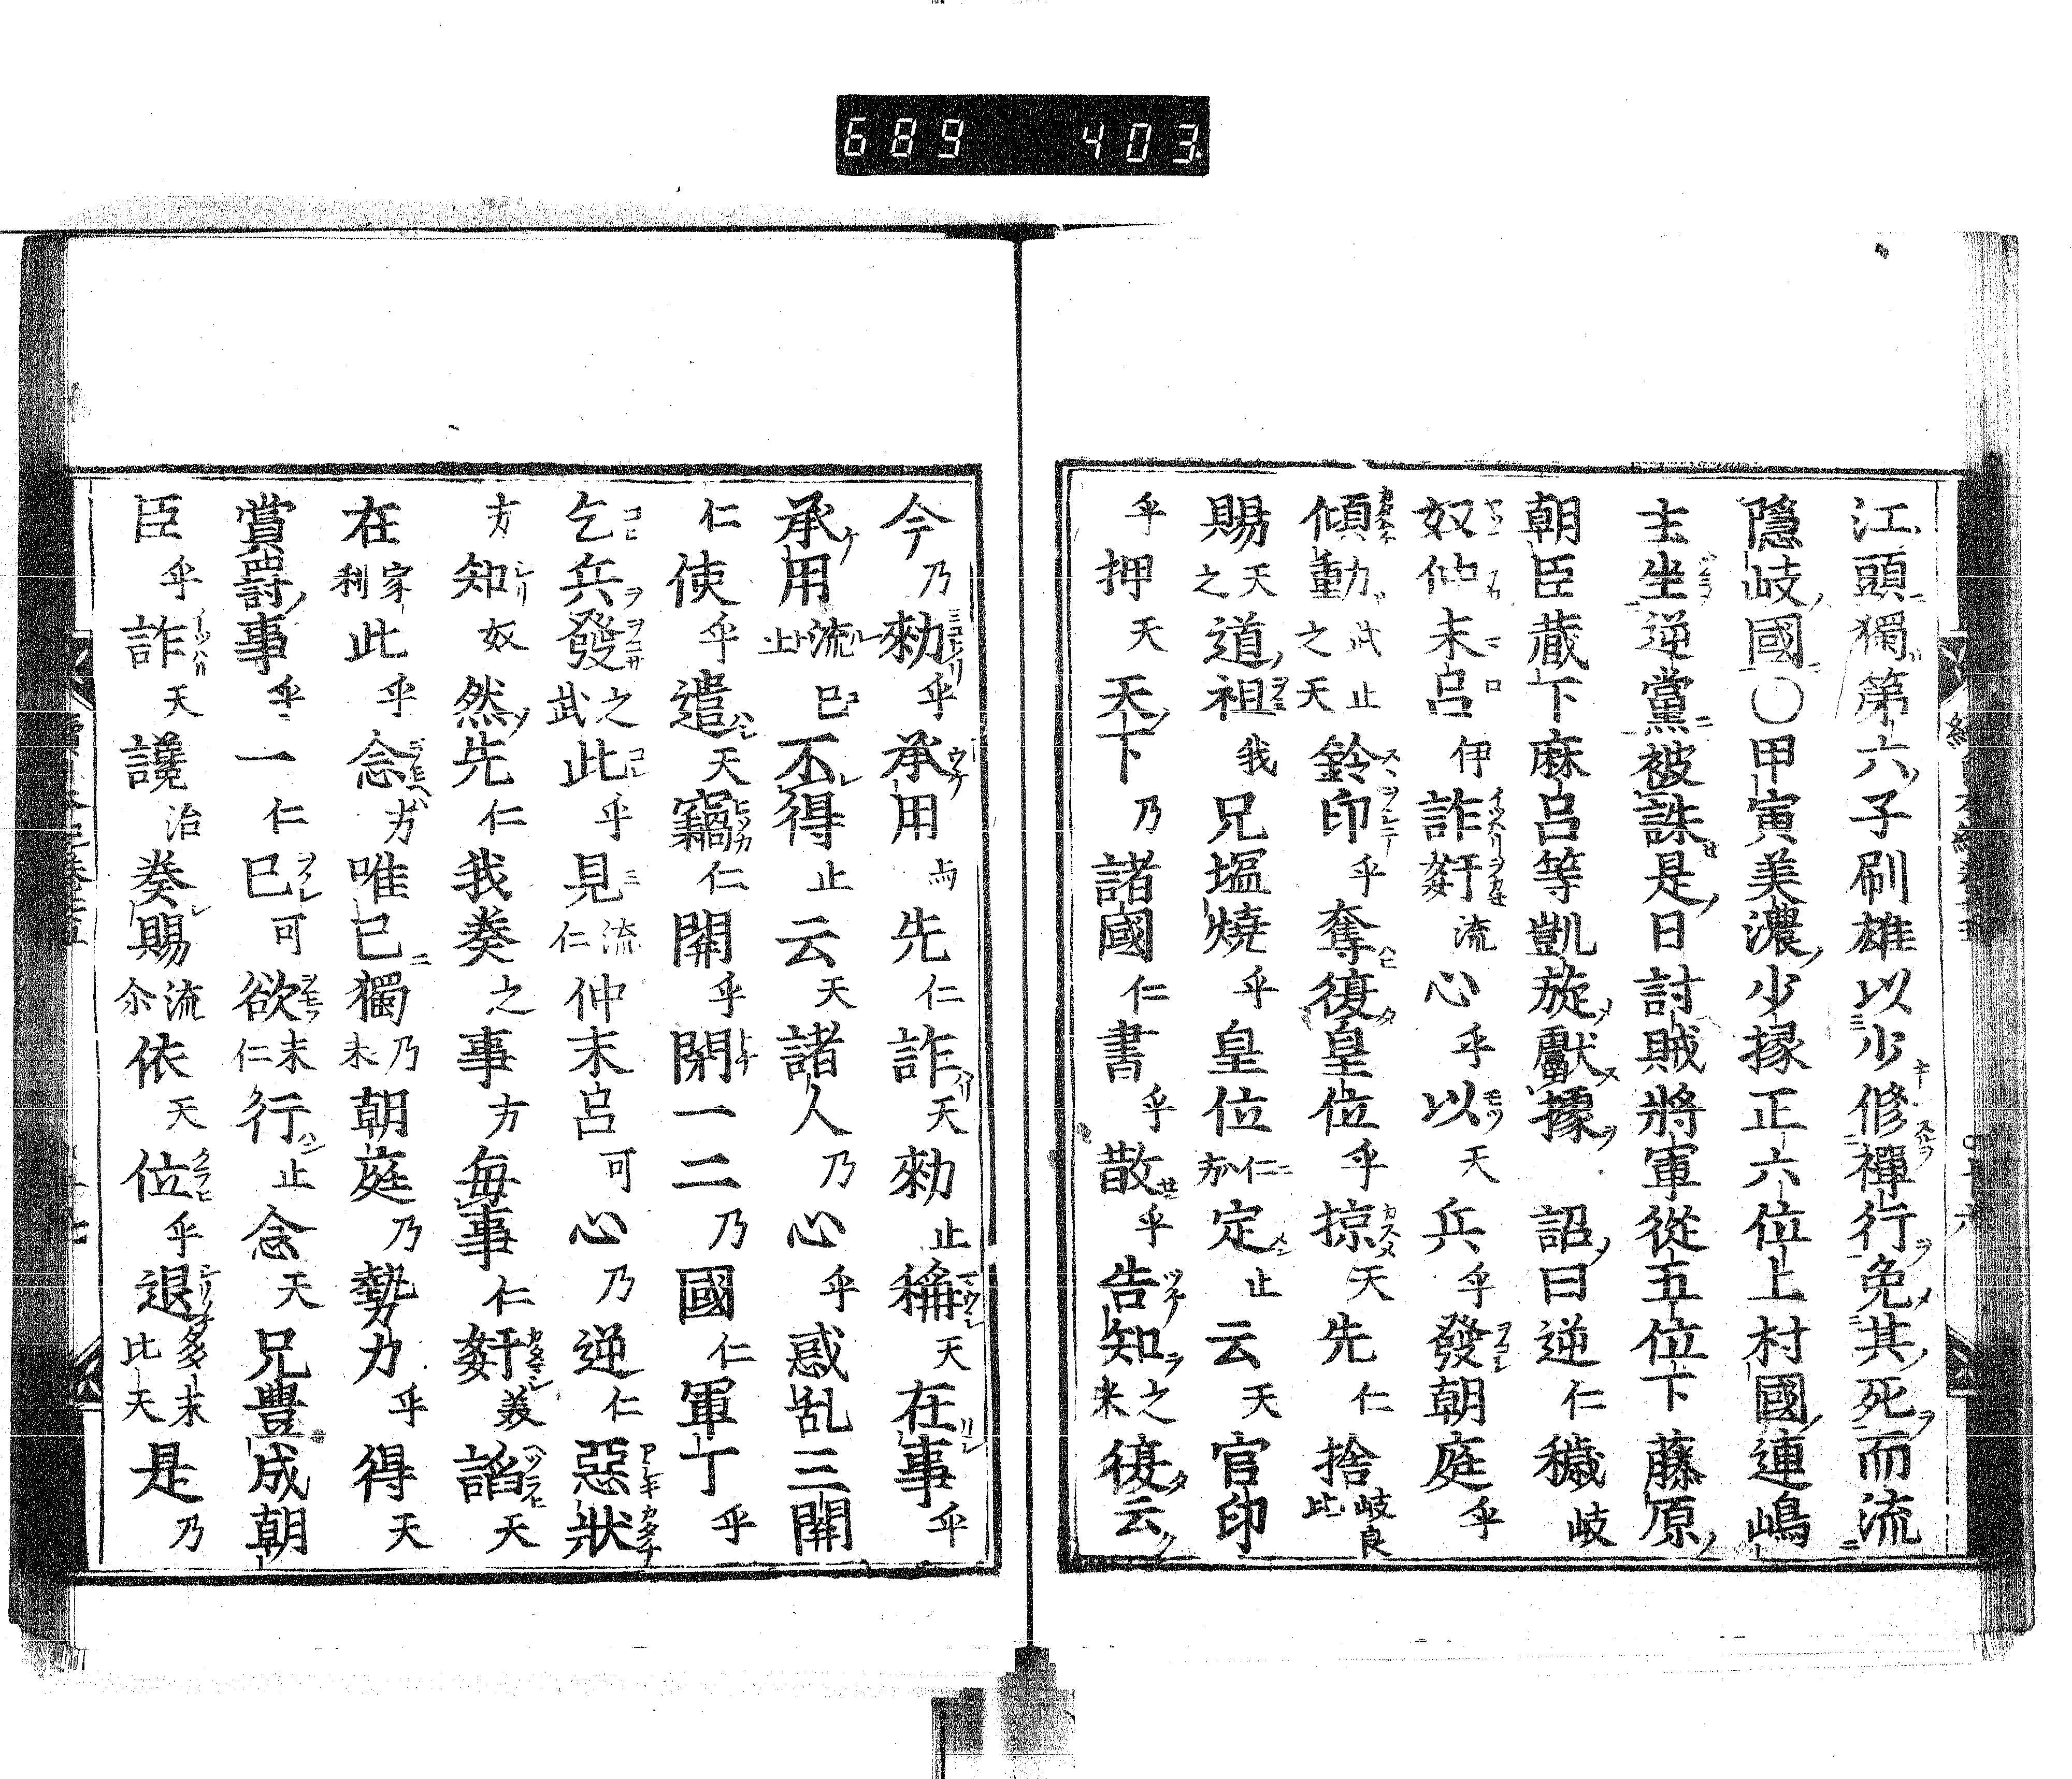 689 403
江頭獨第六子刷雄以少修禪行免其死而流
隱岐國〇甲寅美濃少掾正六位上村國連嶋
主坐逆黨被誅是日討賊將軍從五位下藤原
朝臣蔵下麻呂等凱旋獻據 詔曰逆仁穢岐
奴仲末呂伊詐姧流心乎以天兵乎發朝庭乎
傾動力武止之天鈴印乎奪復皇位乎掠天先仁捨岐良比
賜天之道祖我兄塩燒乎皇位仁方定止云天官印
乎押天天下乃諸國仁書乎散乎告知之米復云
今乃勑乎承用与先仁詐天勑止稱天在事乎
承用流止巳不得止云天諸人乃心乎惑乱三関
仁使乎遣天竊仁関乎閇一二乃國仁軍丁乎
乞兵發之武此乎見流仁仲末呂可心乃逆仁惡狀
方知奴然先仁我奏之事方每事仁姧美謟天
在家利此乎念方唯已獨乃末朝庭乃勢力乎得天
賞罰事乎一仁巳可欲末仁行止念天兄豊成朝
臣乎詐天讒治奏賜流尓依天位乎退多末比天是乃